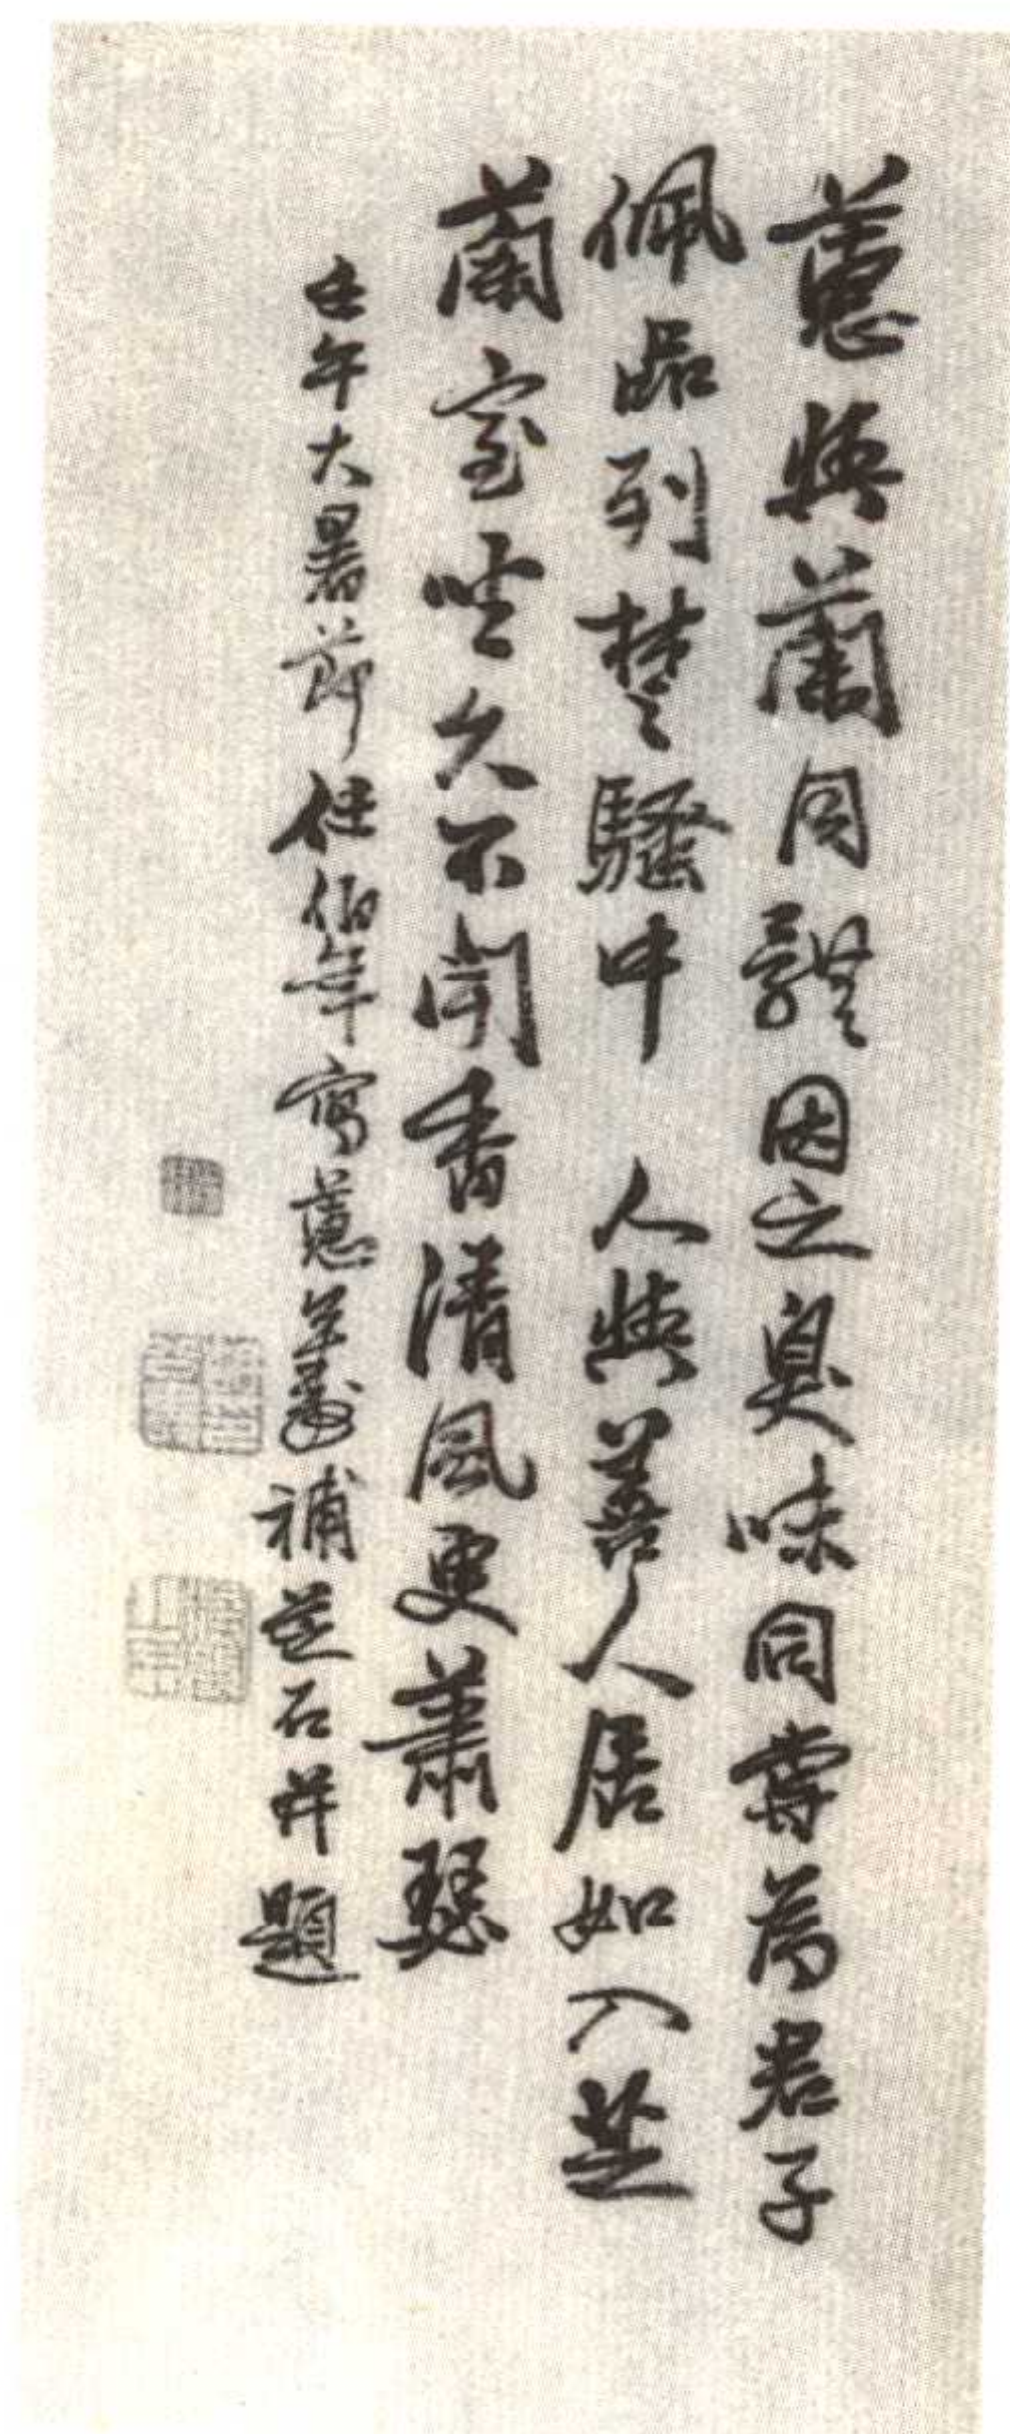 蕙與蘭同體因之臭味同尊為君子
佩品列楚騷中 人與善人居如入芝
蘭室坐久不聞香清風更蕭瑟
壬午大暑節任伯年寫蕙羊壽補芝石并題